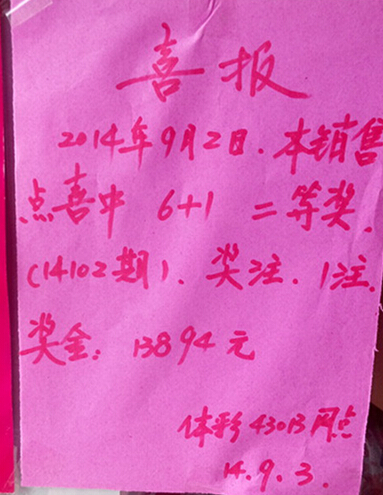 喜报
2014年9月2日.本销售
点喜中 6+1 二等奖.
(14102期)、奖注.1注.
奖金:13894元
体彩43013网点
14.9.3.